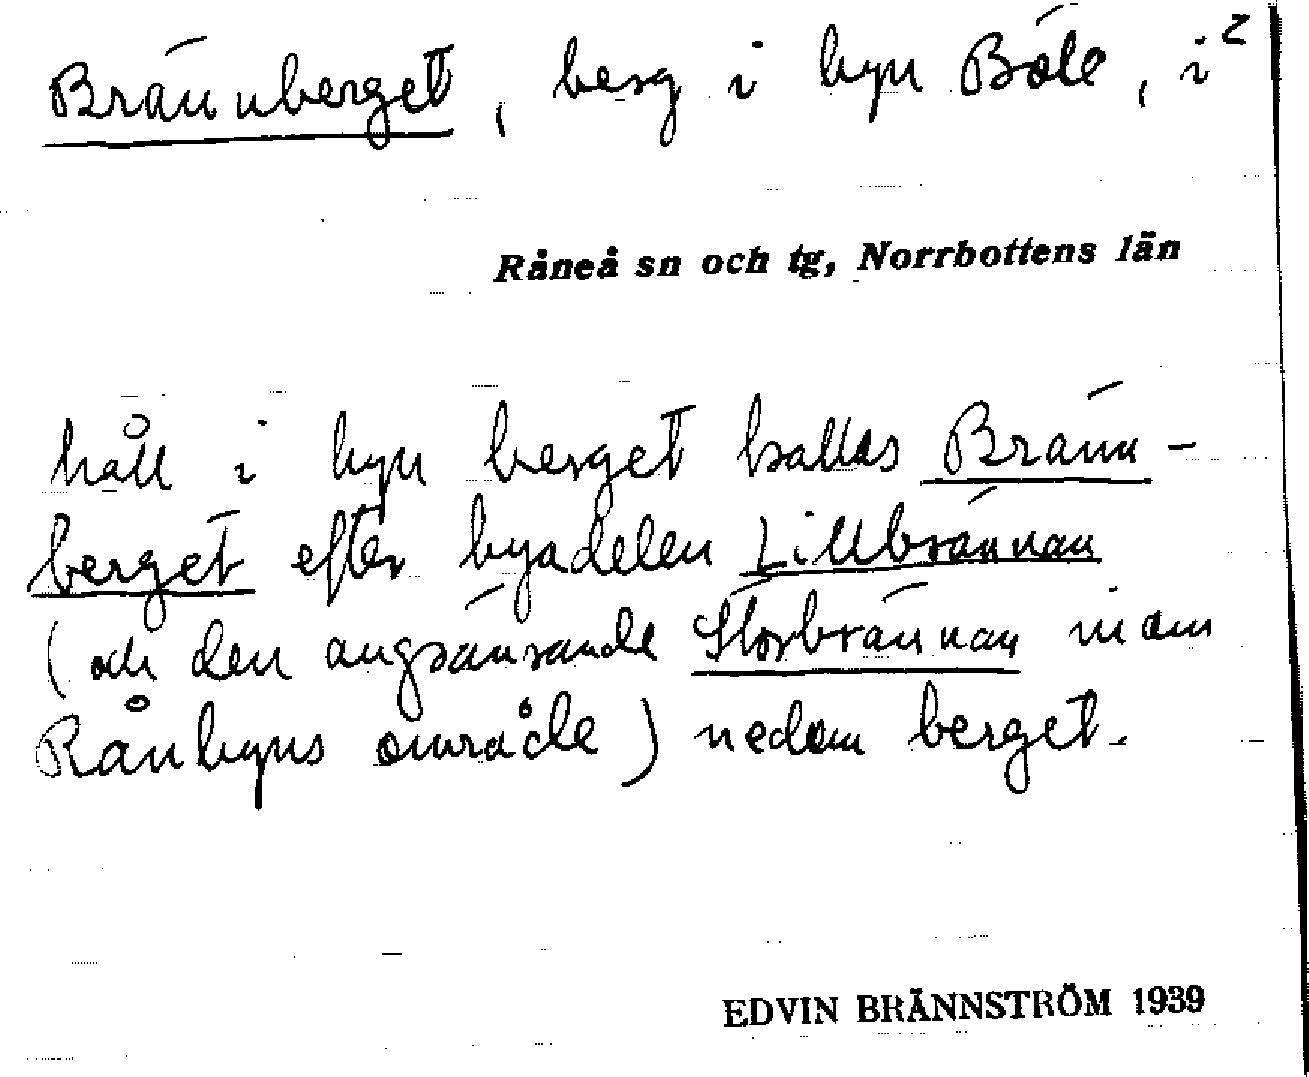 Brännberget, berg i byn Böle, i 2
Råneå sn och tg, Norrbottens län
håll i byn berget kallas Bränn-
berget efter byadelen Lillbrännan
(och den angränsande Storbrännan inom
Rånbyns område) nedom berget.
EDVIN BRÄNNSTRÖM 1939